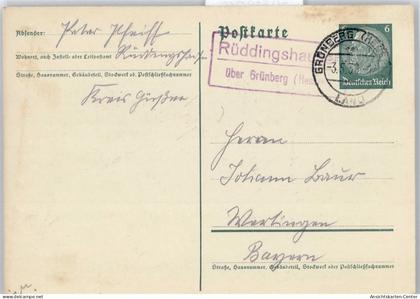 Absender: Peter Pfeiff
Wohnort, auch Zustell- oder Leitpostamt
Rüddingshausen
Straße, Hausnummer, Gebäudeteil, Stockwerk od. Postschließfachnummer
Kreis Gießen
Postkarte
Rüddingshausen
über Grünberg (Hess
GRÜNBERG (HESS
LAND
6
Deutsches Reich
Herrn
Johann Baur
Wertingen
Bayern
Straße, Hausnummer, Gebäudeteil, Stockwerk oder Postschließfachnummer
Ansichtskarten-Center